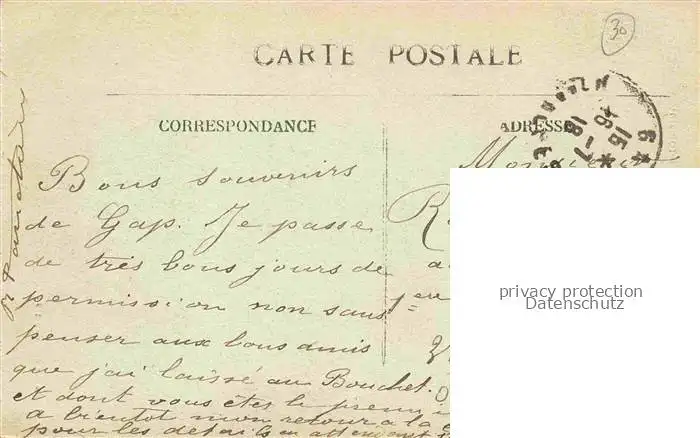 30
CARTE POSTALE
CORRESPONDANCE
ADRESSE
Monsieur
Bons souvenirs
de Gap. Je passe
de très bons jours de
permission non sans
penser aux bons amis
que j'ai laissé au Bouchet.
et dont vous êtes le premi
a bientot mon retour a la
pour les details en attendant
privacy protection
Datenschutz
15
18-7